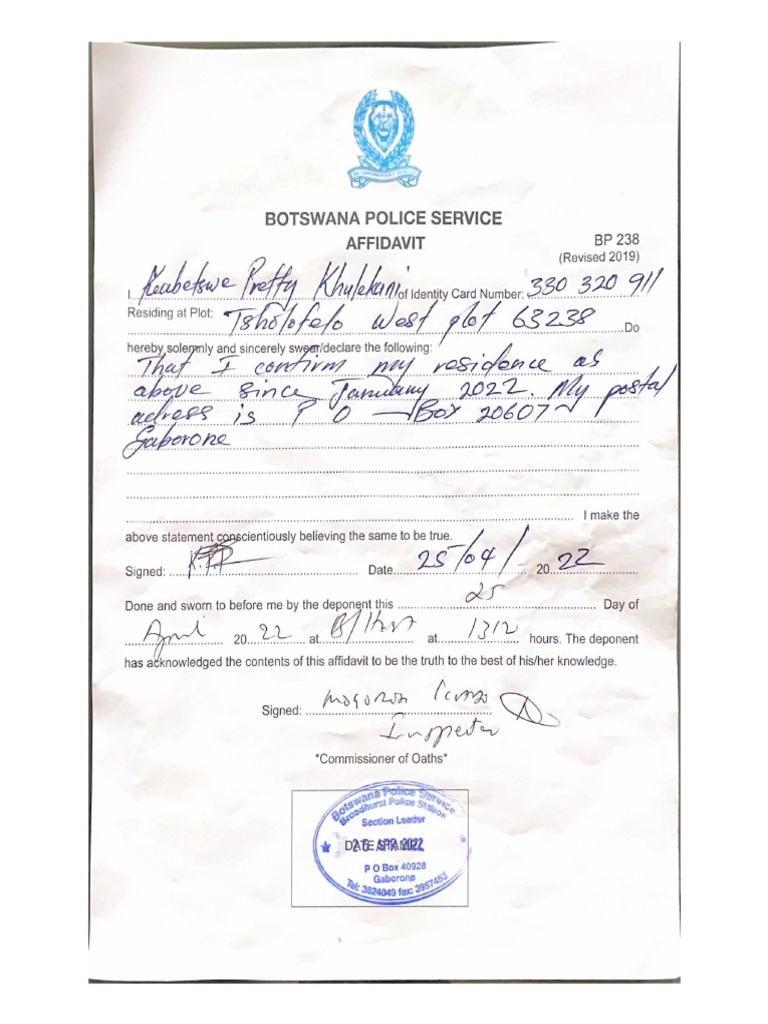 BOTSWANA POLICE SERVICE
AFFIDAVIT
BP 238
(Revised 2019)
I Keabetswe Pretty Khulekani of Identity Card Number: 330 320 911
Residing at Plot: Tsholofelo West plot 63238 Do
hereby solemnly and sincerely swear/declare the following:
That I confirm my residence as
above since January 2022. My postal
adress is P O Box 20607
Gaborone
I make the
above statement conscientiously believing the same to be true.
Signed: Date 25/04/ 20 22
Done and sworn to before me by the deponent this 25 Day of
April 20 22 at B/Hurst at 1312 hours. The deponent
has acknowledged the contents of this affidavit to be the truth to the best of his/her knowledge.
Signed:
Inspector
*Commissioner of Oaths*
Botswana Police Service
Broadhurst Police Station
Section Leader
APR 2022
P O Box 40928
Gaborone
Tel: 3924049 fax: 3957453